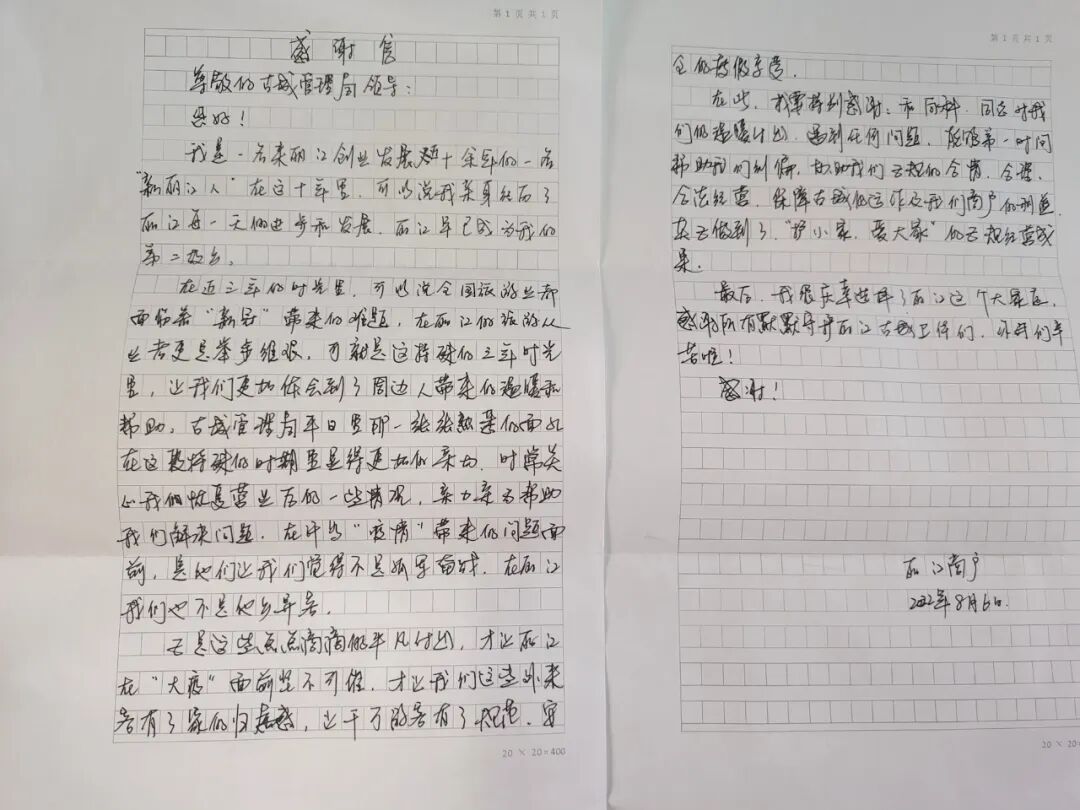 第 1 页 共 1 页
感谢信
尊敬的古城管理局领导：
您好！
我是一名来丽江创业发展十余年的一名
"新丽江人"在这十年里，可以说我亲身经历了
丽江每一天的进步和发展，丽江早已成为我的
第二故乡。
在近三年的时光里，可以说全国旅游业都
面临着"新冠"带来的难题，在丽江的旅游从
业者更是举步维艰，可就是这特殊的三年时光
里，让我们更加体会到了周边人带来的温暖和
帮助，古城管理局平日里那一张张熟悉的面孔
在这段特殊的时期里显得更加的亲切，时常关
心我们恢复营业后的一些情况，亲力亲为帮助
我们解决问题，在许多"疫情"带来的问题面
前，是他们让我们觉得不是孤军奋战，在丽江
我们也不是他乡异客。
正是这些点点滴滴的平凡付出，才让丽江
在"大疫"面前坚不可摧，才让我们这些外来
客有了家的归属感，让千万游客有了规范、安
20 × 20 = 400
第 1 页 共 1 页
全的度假享受。
在此，我要特别感谢：和同科，同志对我
们的温暖付出，遇到任何问题，能够第一时间
帮助我们纠偏，协助我们正规的合情、合理、
合法经营，保障古城的运作及我们商户的利益，
真正做到了"护小家，爱大家"的正规经营成
果。
最后，我很庆幸选择了丽江这个大家庭，
感谢所有默默守护丽江古城卫士们，你们辛
苦啦！
感谢！
丽江商户
2022年8月6日
20 × 20